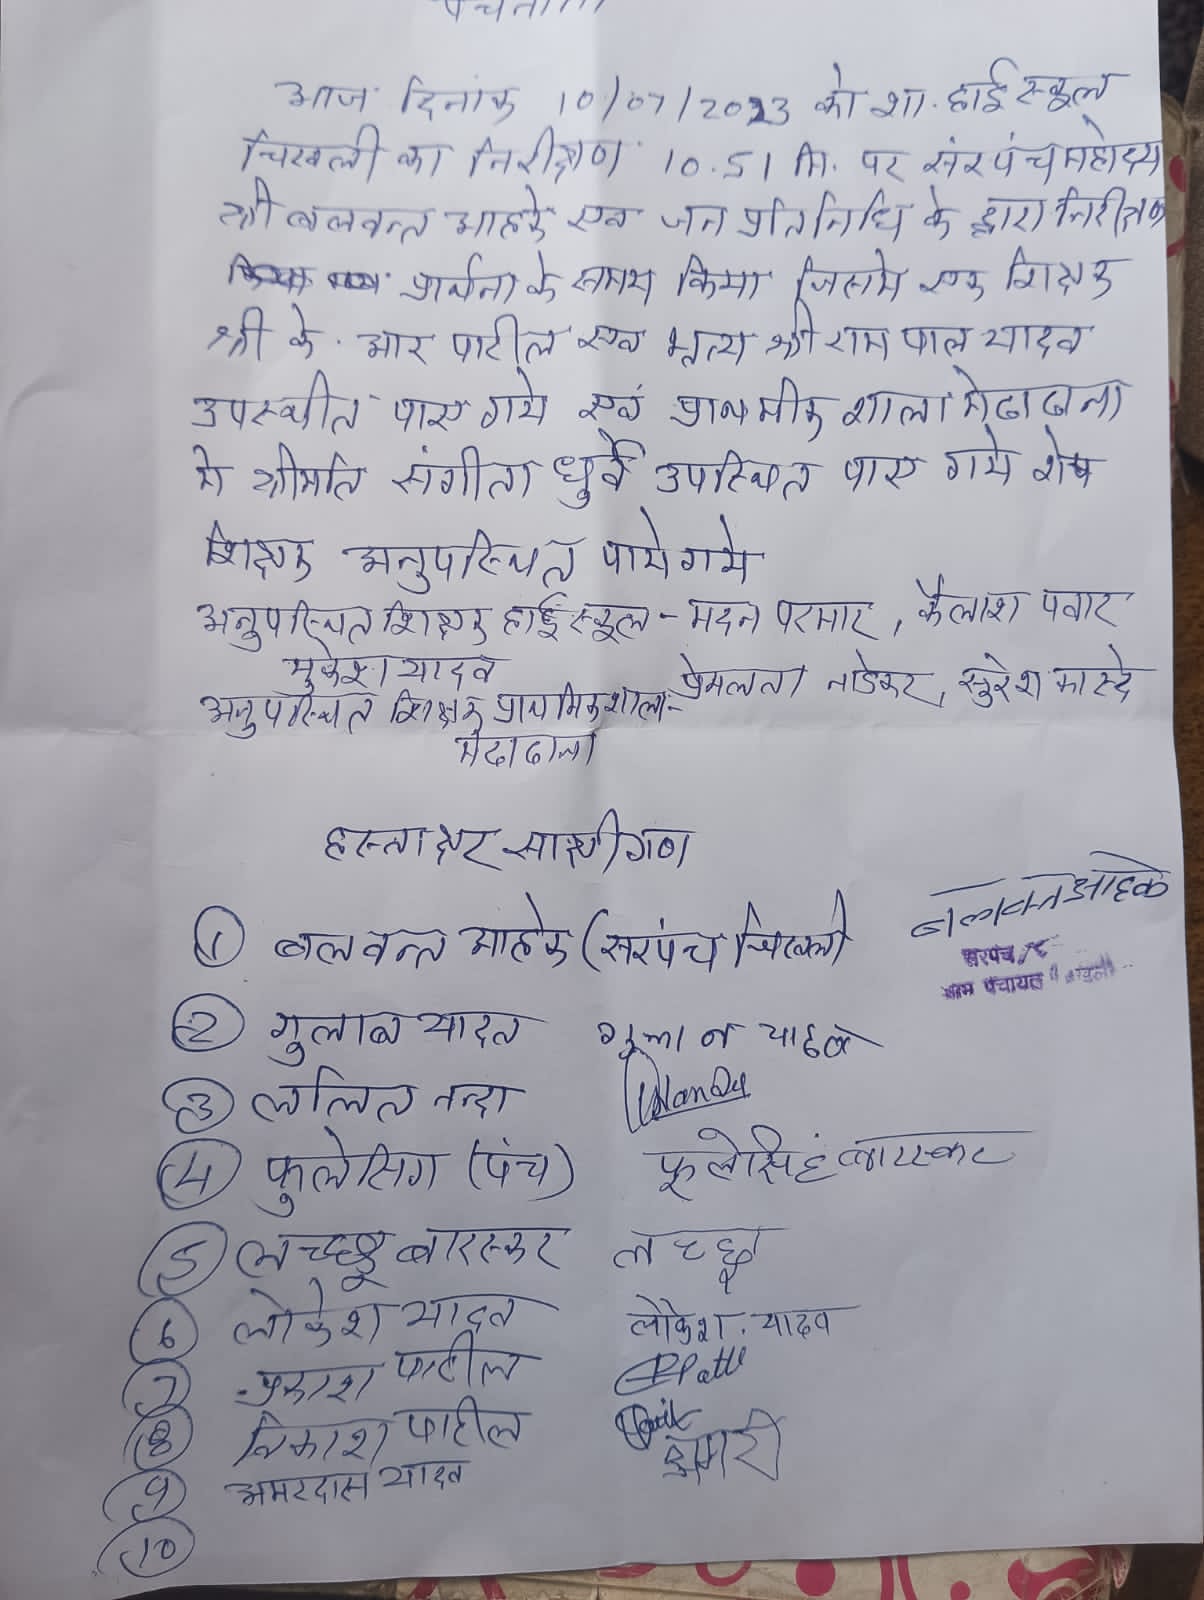 पंचनामा
आज दिनांक 10/07/2023 को शा. हाई स्कूल
चिखली का निरीक्षण 10.51 मि. पर संरपंच महोदय
श्री बलवन्त आहके एव जन प्रतिनिधि के द्वारा निरीक्षण
प्रार्थना के समय किया जिसमे एक शिक्षक
श्री के. आर पाटील एव भृत्य श्री राम पाल यादव
उपस्थीत पाए गये एवं प्राथमीक शाला मेढाढाना
मे श्रीमति संगीता धुर्वे उपस्थित पाए गये शेष
शिक्षक अनुपस्थित पाये गये
अनुपस्थित शिक्षक हाई स्कूल - मदन परमार, कैलाश पवार
मुकेश यादव
अनुपस्थित शिक्षक प्राथमिक शाला - प्रेमलता नाडेकर, सुरेश कास्दे
मेढाढाना
हस्ताक्षर साक्षीगण
① बलवन्त आहके (सरपंच चिखली) बलवन्त आहके
सरपंच
ग्राम पंचायत
② गुलाब यादव गुलाब यादव
③ ललित नन्दा
④ फुलेसिग (पंच) फूलेसिहं बारस्कर
⑤ लच्छू बारस्कर लच्छू
⑥ लोकेश यादव लोकेश. यादव
⑦ प्रकाश पाटील
⑧ विकाश पाटील
⑨ अमरदास यादव
⑩